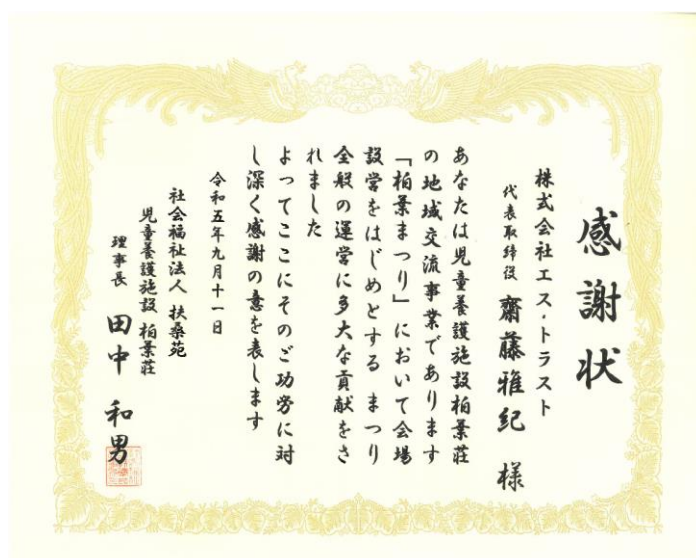 感謝状
株式会社エス・トラスト
代表取締役 齋藤雅紀 様
あなたは児童養護施設柏葉荘
の地域交流事業であります
「柏葉まつり」において会場
設営をはじめとする まつり
全般の運営に多大な貢献をさ
れました
よってここにそのご功労に対
し深く感謝の意を表します
令和五年九月十一日
社会福祉法人 扶桑苑
児童養護施設 柏葉荘
理事長 田中 和男